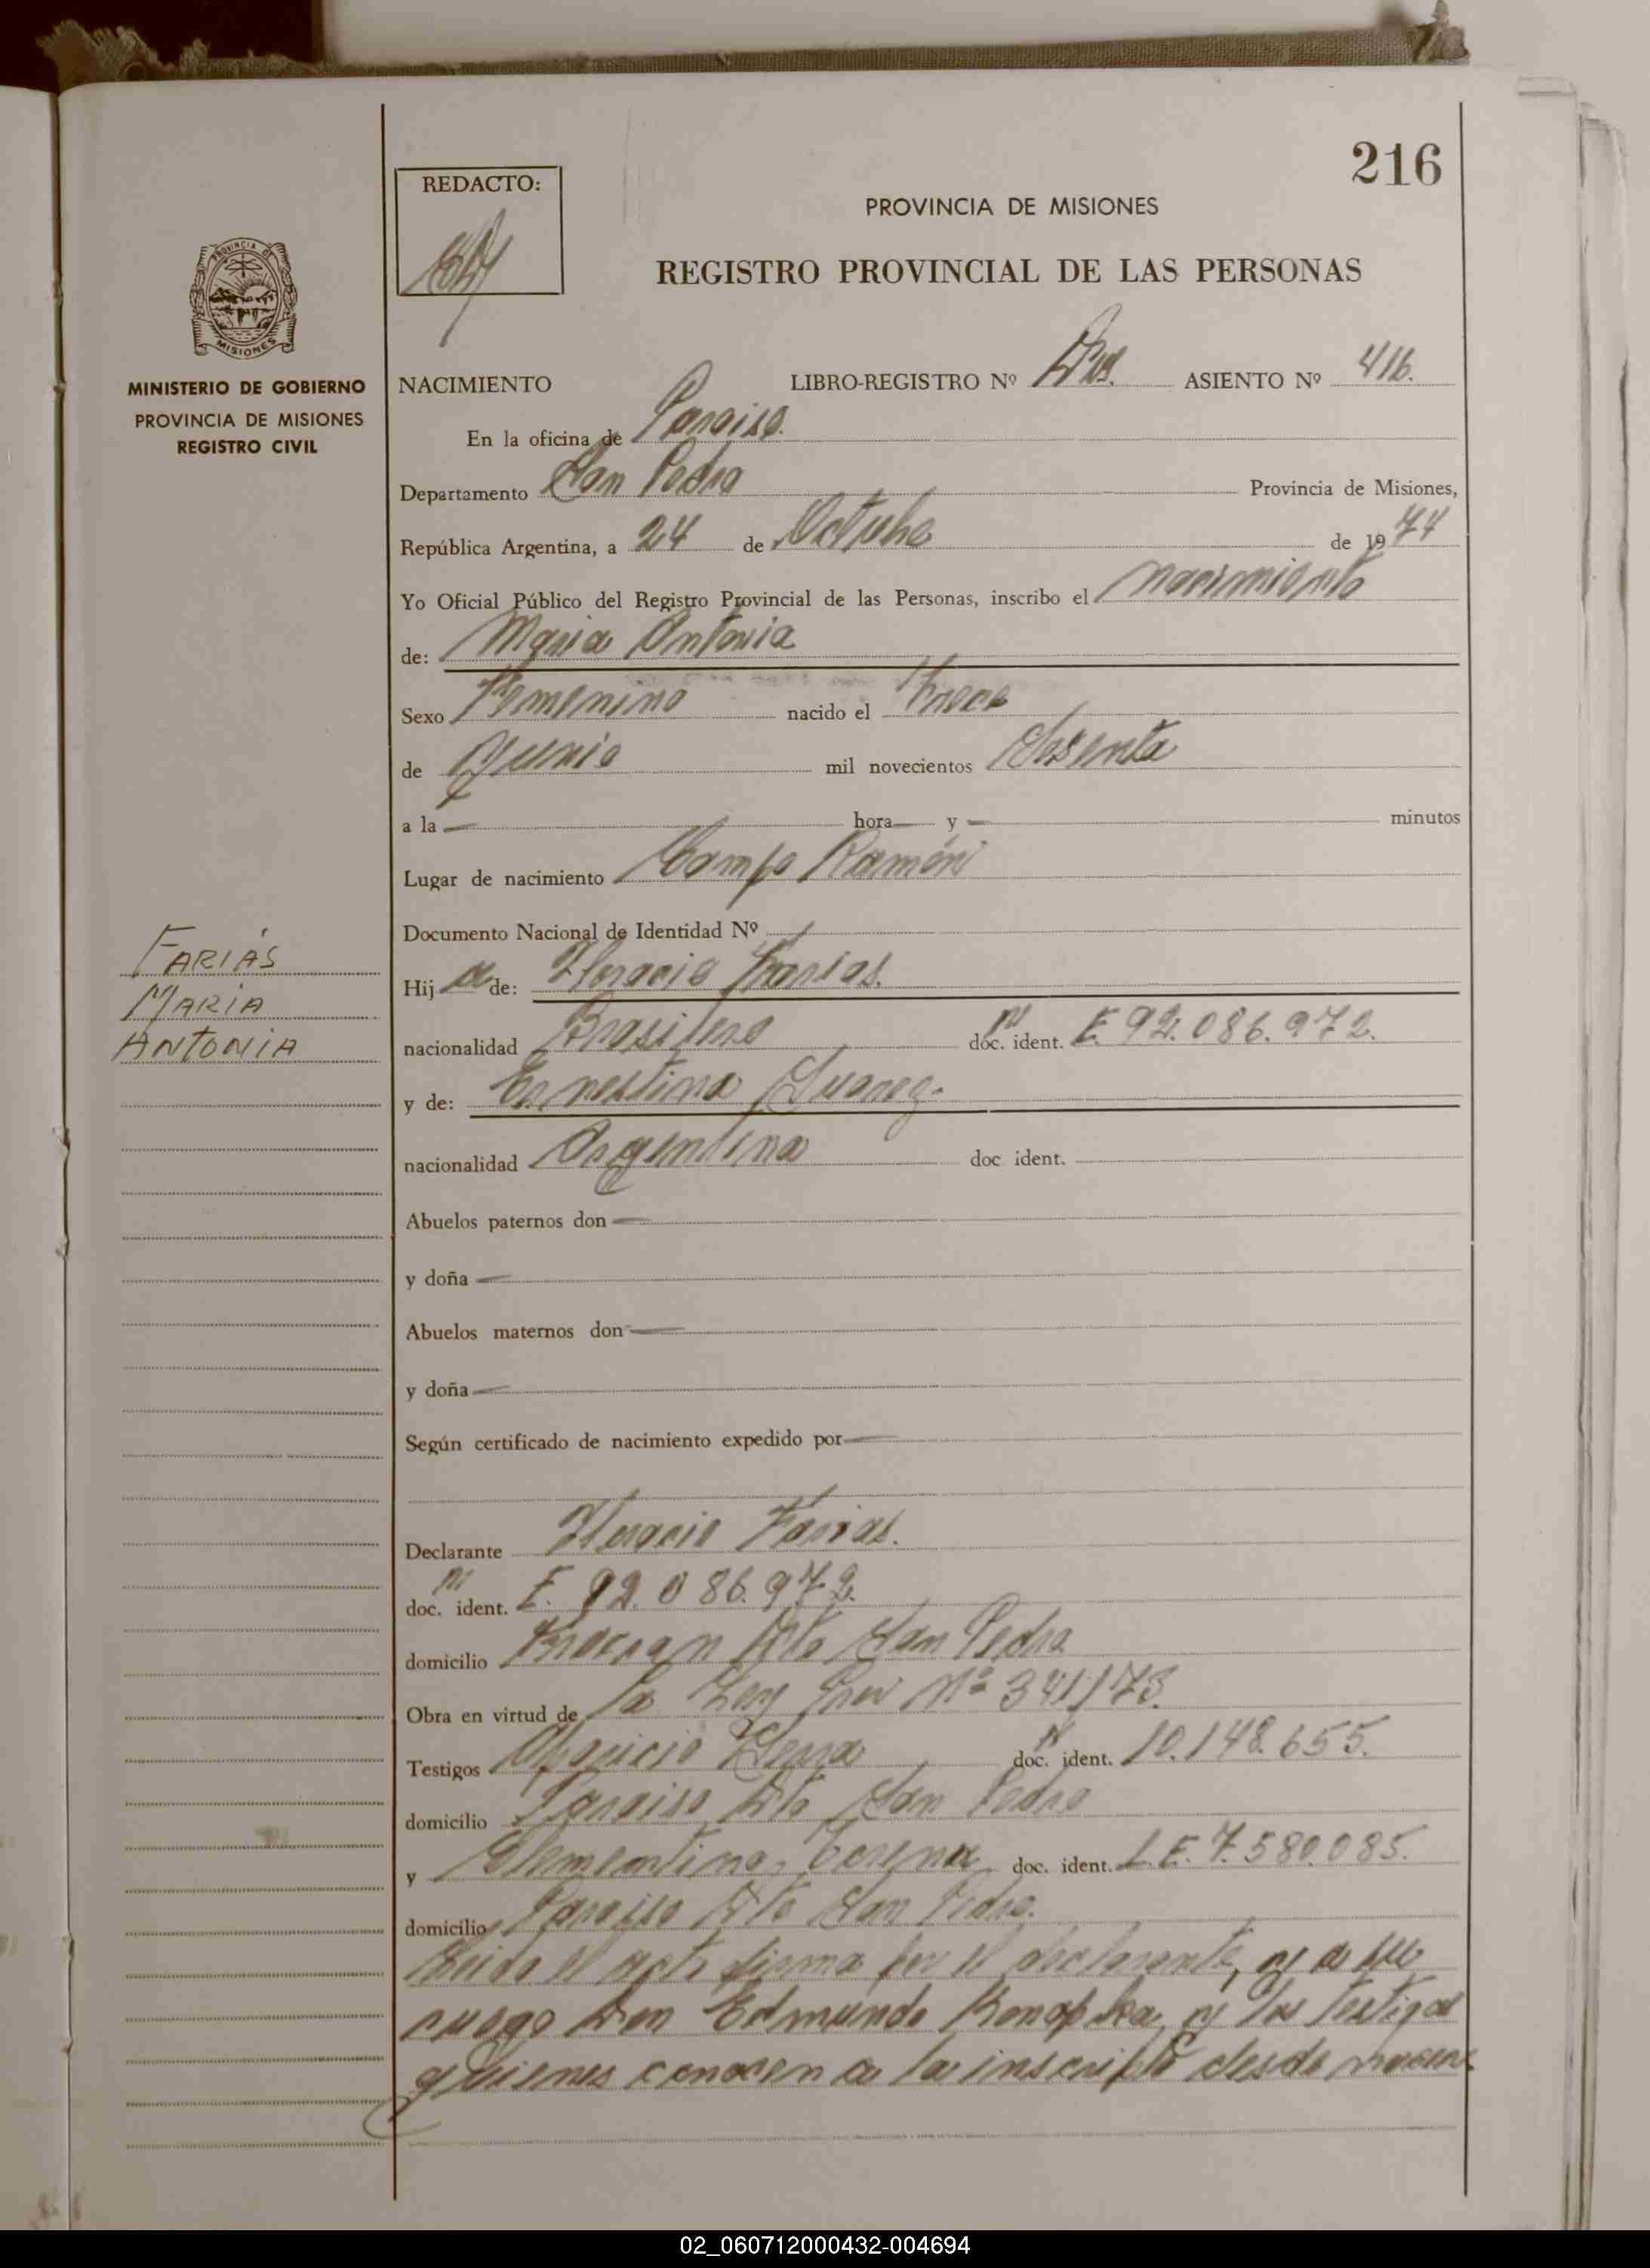 216
REDACTO:
PROVINCIA DE MISIONES
REGISTRO PROVINCIAL DE LAS PERSONAS
PROVINCIA DE
MISIONES
MINISTERIO DE GOBIERNO
PROVINCIA DE MISIONES
REGISTRO CIVIL
NACIMIENTO LIBRO-REGISTRO Nº Dos. ASIENTO Nº 416.
En la oficina de Paraiso.
Departamento San Pedro Provincia de Misiones,
República Argentina, a 24 de Octubre de 1974
Yo Oficial Público del Registro Provincial de las Personas, inscribo el nacimiento
de: Maria Antonia
Sexo Femenino nacido el trece
de Junio mil novecientos Sesenta
a la — hora — y — minutos
Lugar de nacimiento Campo Ramón
Documento Nacional de Identidad Nº
FARIAS
MARIA
ANTONIA
Hij a de: Horacio Farias.
nacionalidad Brasilera doc. ident. E. 92.086.972.
y de: Ernestina Suarez.
nacionalidad Argentina doc ident.
Abuelos paternos don —
y doña —
Abuelos maternos don —
y doña —
Según certificado de nacimiento expedido por —
Declarante Horacio Farias.
doc. ident. E. 92.086.972.
domicilio Dto San Pedro
Obra en virtud de la Ley Nº 341/73.
Testigos Aparicio doc. ident. 10.148.655.
domicilio Paraiso Dto San Pedro
y doc. ident. L.E. 7.580.085.
domicilio Paraiso Dto San Pedro.
Leida el acta firma por el declarante, y a su
ruego Don Edmundo Konopka y los testigos
quienes conocen a la inscripta desde nacer
02_060712000432-004694